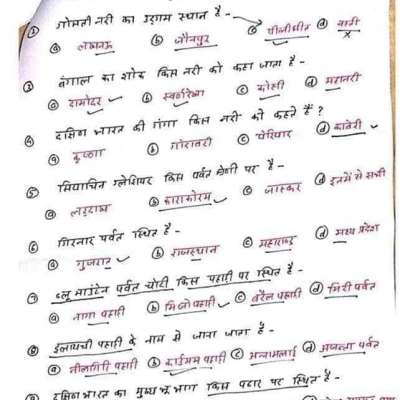 ② गोमती नदी का उद्गम स्थान है -
ⓐ लखनऊ ⓑ जौनपुर ⓒ पीलीभीत ⓓ
③ बंगाल का शोक किस नदी को कहा जाता है -
ⓐ दामोदर ✓ ⓑ स्वर्णरेखा ⓒ कोसी ⓓ महानदी
④ दक्षिण भारत की गंगा किस नदी को कहते हैं ?
ⓐ कृष्णा ⓑ गोदावरी ⓒ पेरियार ⓓ कावेरी ✓
⑤ सियाचिन ग्लेशियर किस पर्वत श्रेणी पर है -
ⓐ लद्दाख ⓑ काराकोरम ✓ ⓒ जास्कर ⓓ इनमें से सभी
⑥ गिरनार पर्वत स्थित है -
ⓐ गुजरात ✓ ⓑ राजस्थान ⓒ महाराष्ट्र ⓓ मध्य प्रदेश
⑦ ब्लू माउंटेन पर्वत चोटी किस पहाड़ी पर स्थित है -
ⓐ नागा पहाड़ी ⓑ मिजो पहाड़ी ✓ ⓒ बरैल पहाड़ी ⓓ मिरी पर्वत
⑧ इलायची पहाड़ी के नाम से जाना जाता है -
ⓐ नीलगिरी पहाड़ी ⓑ कार्डमम पहाड़ी ✓ ⓒ अन्नामलाई ⓓ अजन्ता पर्वत
दक्षिण भारत का मुख्य भू भाग किस पठार पर स्थित है -